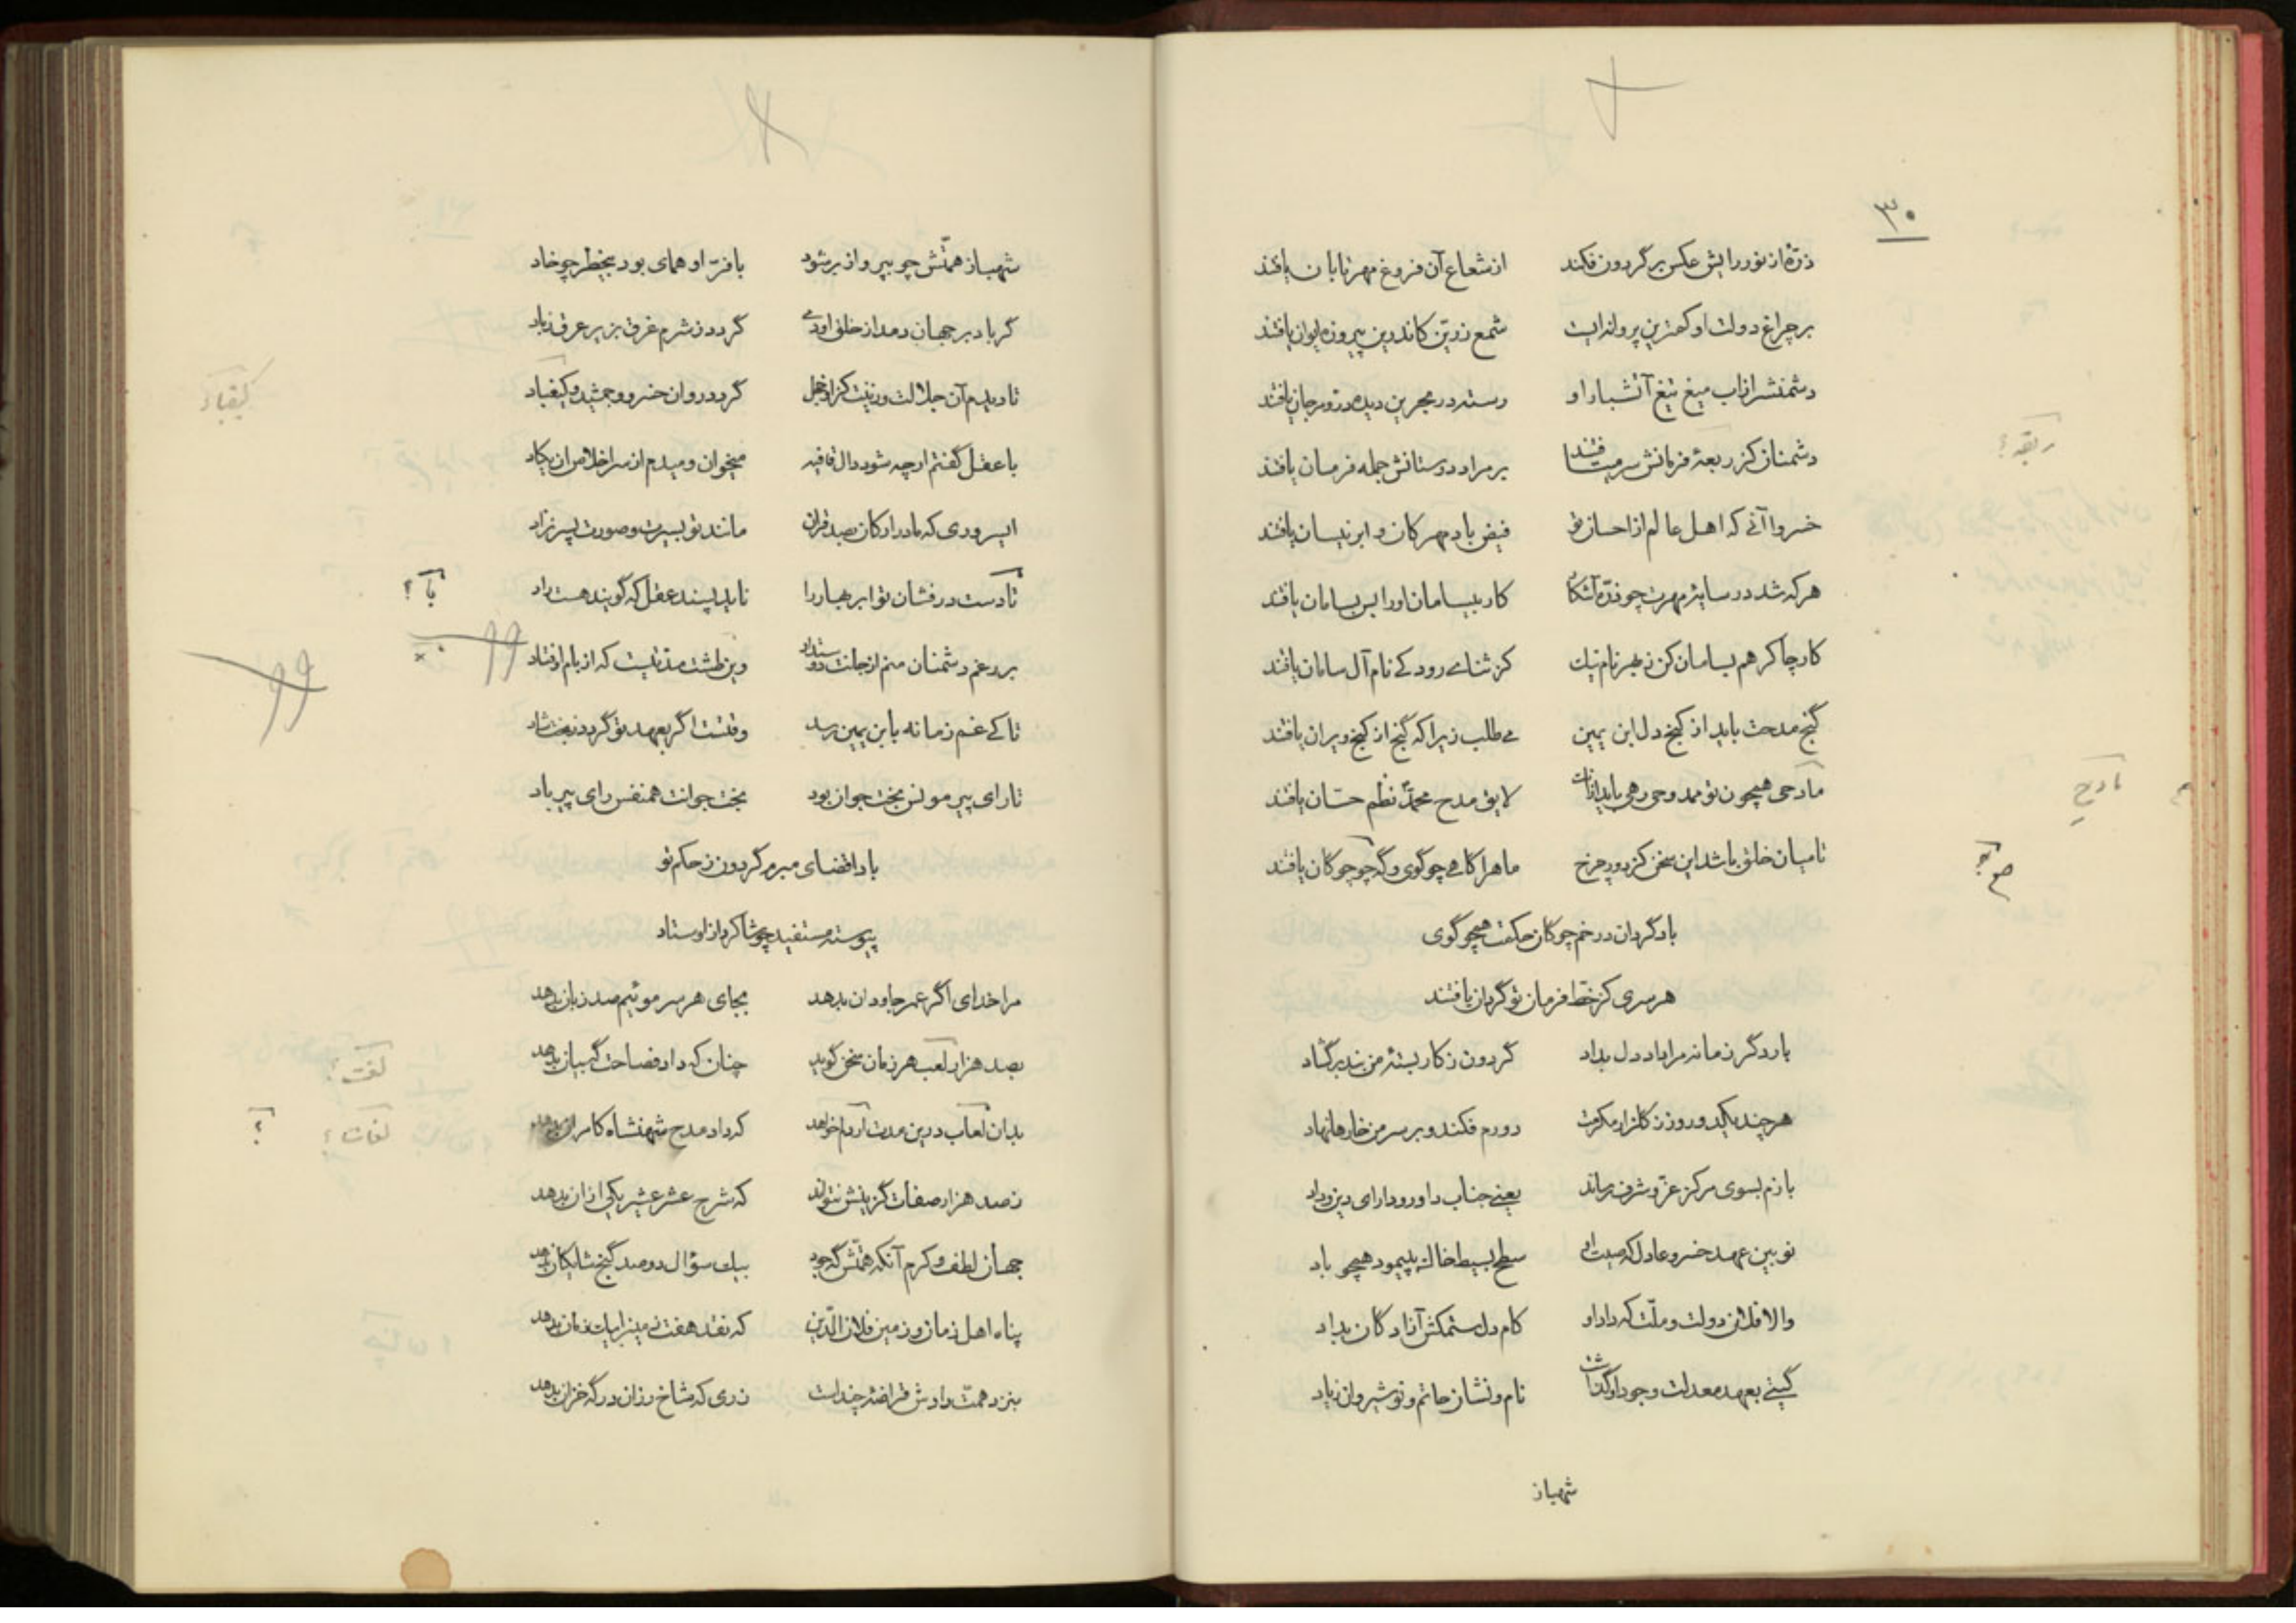 ۳۰
ذرّهٔ از نور رایش عکس بر گردون فکند از شعاع آن فروغ مهر تابان یافتند
بر چراغ دولت او کمترین پروانه ایست شمع زرّین کاندرین پیروزه ایوان یافتند
دشمنش را ز آب میغ تیغ آتشبار او رسته در بحرین دیده در و مرجان یافتند
دشمنان کز ربعهٔ فرمانش سر میتافتند بر مراد دوستانش جمله فرمان یافتند
ربقه؟
خسروا آنی که اهل عالم از احسان تو فیض باد مهرکان و ابر نیسان یافتند
هر که شد در سایهٔ مهرت چو ذرّه آشکار کار بیسامان او را بس بسامان یافتند
کار چاکر هم بسامان کن ز بهر نام نیک کز ثنای رودکی نام آل سامان یافتند
گنج مدحت باید از کنج دل ابن یمین می طلب زیرا که گنج از کنج ویران یافتند
مادحی همچون تو ممدوحی رهی باید از آنک لایق مدح محمّد نظم حسّان یافتند
مادح
تا میان خلق باشد این سخن کز دور چرخ ماه را گاهی چو گوی و گه چو چوگان یافتند
باد گردان در خم چوگان حکمت همچو گوی
هر سری کز خطّ فرمان تو گردان یافتند
بار دگر زمانه مرا باد دل بداد گردون ز کار بستهٔ من بند برگشاد
هر چند یکدو روز ز گلزار مکرمت دورم فکند و بر سر من خارها نهاد
بازم بسوی مرکز عزّ و شرف رساند یعنی جناب داور و دارای دین و داد
نویین عهد خسرو عادل که صیت او سطح بسیط خاک بپیمود همچو باد
والا فلان دولت و ملّت که داد او کام دل ستمکش آزادگان بداد
گیتی بعهد معدلت و جود او گذاشت نام و نشان حاتم و نوشیروان ز یاد
شهباز
شهباز همّتش چو بپرواز بر شود با فرّ او همای بود بیخطر چو خاد
گر باد بر جهان دمد از خلق او دمی گردد ز شرم غرق بزیر عرق ز باد
تا دیدم آن جلالت و زینت کز او خجل گردد روان خسرو و جمشید و کیغباد
کیقباد
با عقل گفتم ار چه شود دال قافیه میخوان و میدم از سر اخلاص ان یکاد
ای سروری که مادر ارکان بصد قران مانند تو بسیرت و صورت پسر نزاد
تا دست درفشان تو ابر بهار را ناید پسند عقل که گویند هست راد
با ؟
بر رغم دشمنان منم از جانت دوستدار وین طشت مدّتیست که از بام اوفتاد
تا کی غم زمانه بابن یمین رسد وقتست اگر بعهد تو گردد ز بخت شاد
تا رای پیر مونس بخت جوان بود بخت جوانت همنفس رای پیر باد
بادا قضای مبرم گردون ز حکم تو
پیوسته مستفید چو شاگرد از اوستاد
مرا خدای اگر عمر جاودان بدهد بجای هر سر موئیم صد زبان بدهد
بصد هزار لعب هر زمان سخن گوید چنان که داد فصاحت گه بیان بدهد
لغت؟
بدان لعاب درین مدت ار دلم خواهد که داد مدح شهنشاه کامران بدهد
لغات؟ ؟
ز صد هزار صفات گزینش نتواند که شرح عشر عشیر یکی از آن بدهد
جهان لطف و کرم آنکه همّتش گه جود بیک سؤال دو صد گنج شایگان بدهد
پناه اهل زمان و زمین فلان الدّین که نقد هفت زمین را بیک زمان بدهد
بنزد همّت رادش قراضهٔ چند است زری که شاخ رزان در گه خزان بدهد